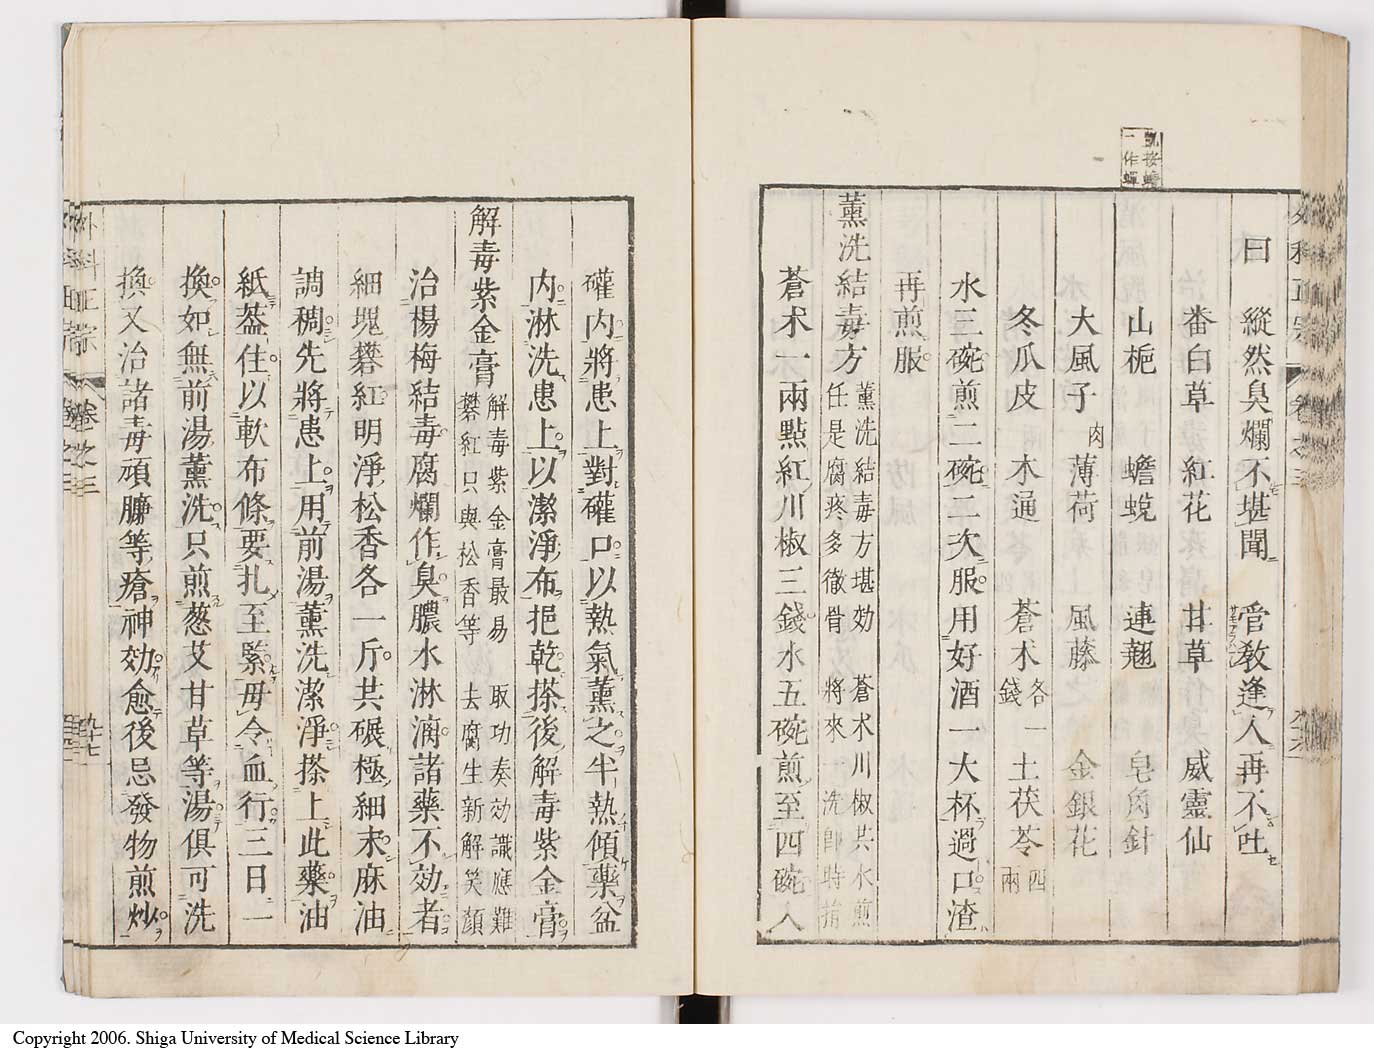 凱按蟾
一作蟬
曰 縱然臭爛不堪聞 管教逢人再不吐
番白草 紅花 甘草 威靈仙
山梔 蟾蛻 連翹 皂角針
大風子肉 薄荷 風藤 金銀花
冬瓜皮 木通 蒼术各一錢 土茯苓四兩
水三碗煎二碗二次服用好酒一大杯過口渣
再煎服
薰洗結毒方 薰洗結毒方堪効 蒼木川椒共水煎
任是腐疼多徹骨 將來一洗即時捐
蒼术一兩點紅川椒三錢水五碗煎至四碗入
外科正宗 卷之三 九十七
礶内將患上對礶口以熱氣薰之半熱傾藥盆
内淋洗患上以潔淨布挹乾搽後解毒紫金膏
解毒紫金膏 解毒紫金膏最易 取功奏効識應難
礬紅只與松香等 去腐生新解笑顏
治楊梅結毒腐爛作臭膿水淋漓諸藥不効者
細塊礬紅明淨松香各一斤共碾極細末麻油
調稠先將患上用前湯薰洗潔淨搽上此藥油
紙葢住以軟布條要扎至緊毋令血行三日一
換如無前湯薰洗只煎葱艾甘草等湯俱可洗
換又治諸毒頑臁等瘡神効愈後忌發物煎炒
Copyright 2006. Shiga University of Medical Science Library